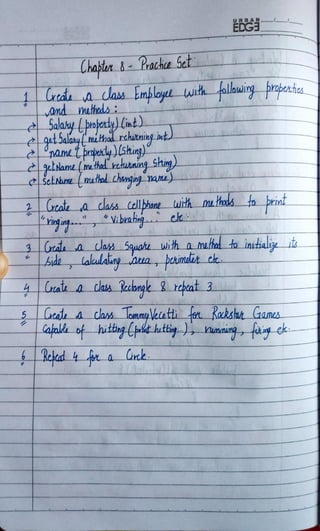 URBAN
EDGE
Chapter 8 - Practice Set
1 Create a class Employee with following properties
and methods :
Salary (property) (int)
get Salary (method returning int)
name (property) (String)
getName (method returning String)
SetName (method changing name)
2 Create a class cellphone with methods to print
"ringing...", "vibrating..." etc.
3 Create a class Square with a method to initialize its
side, Calculating area, perimeter etc.
4 Create a class Rectangle & repeat 3
5 Create a class TommyVecetti for Rockstar Games
Capable of hitting (print hitting..), running, firing etc.
6 Repeat 4 for a Circle.